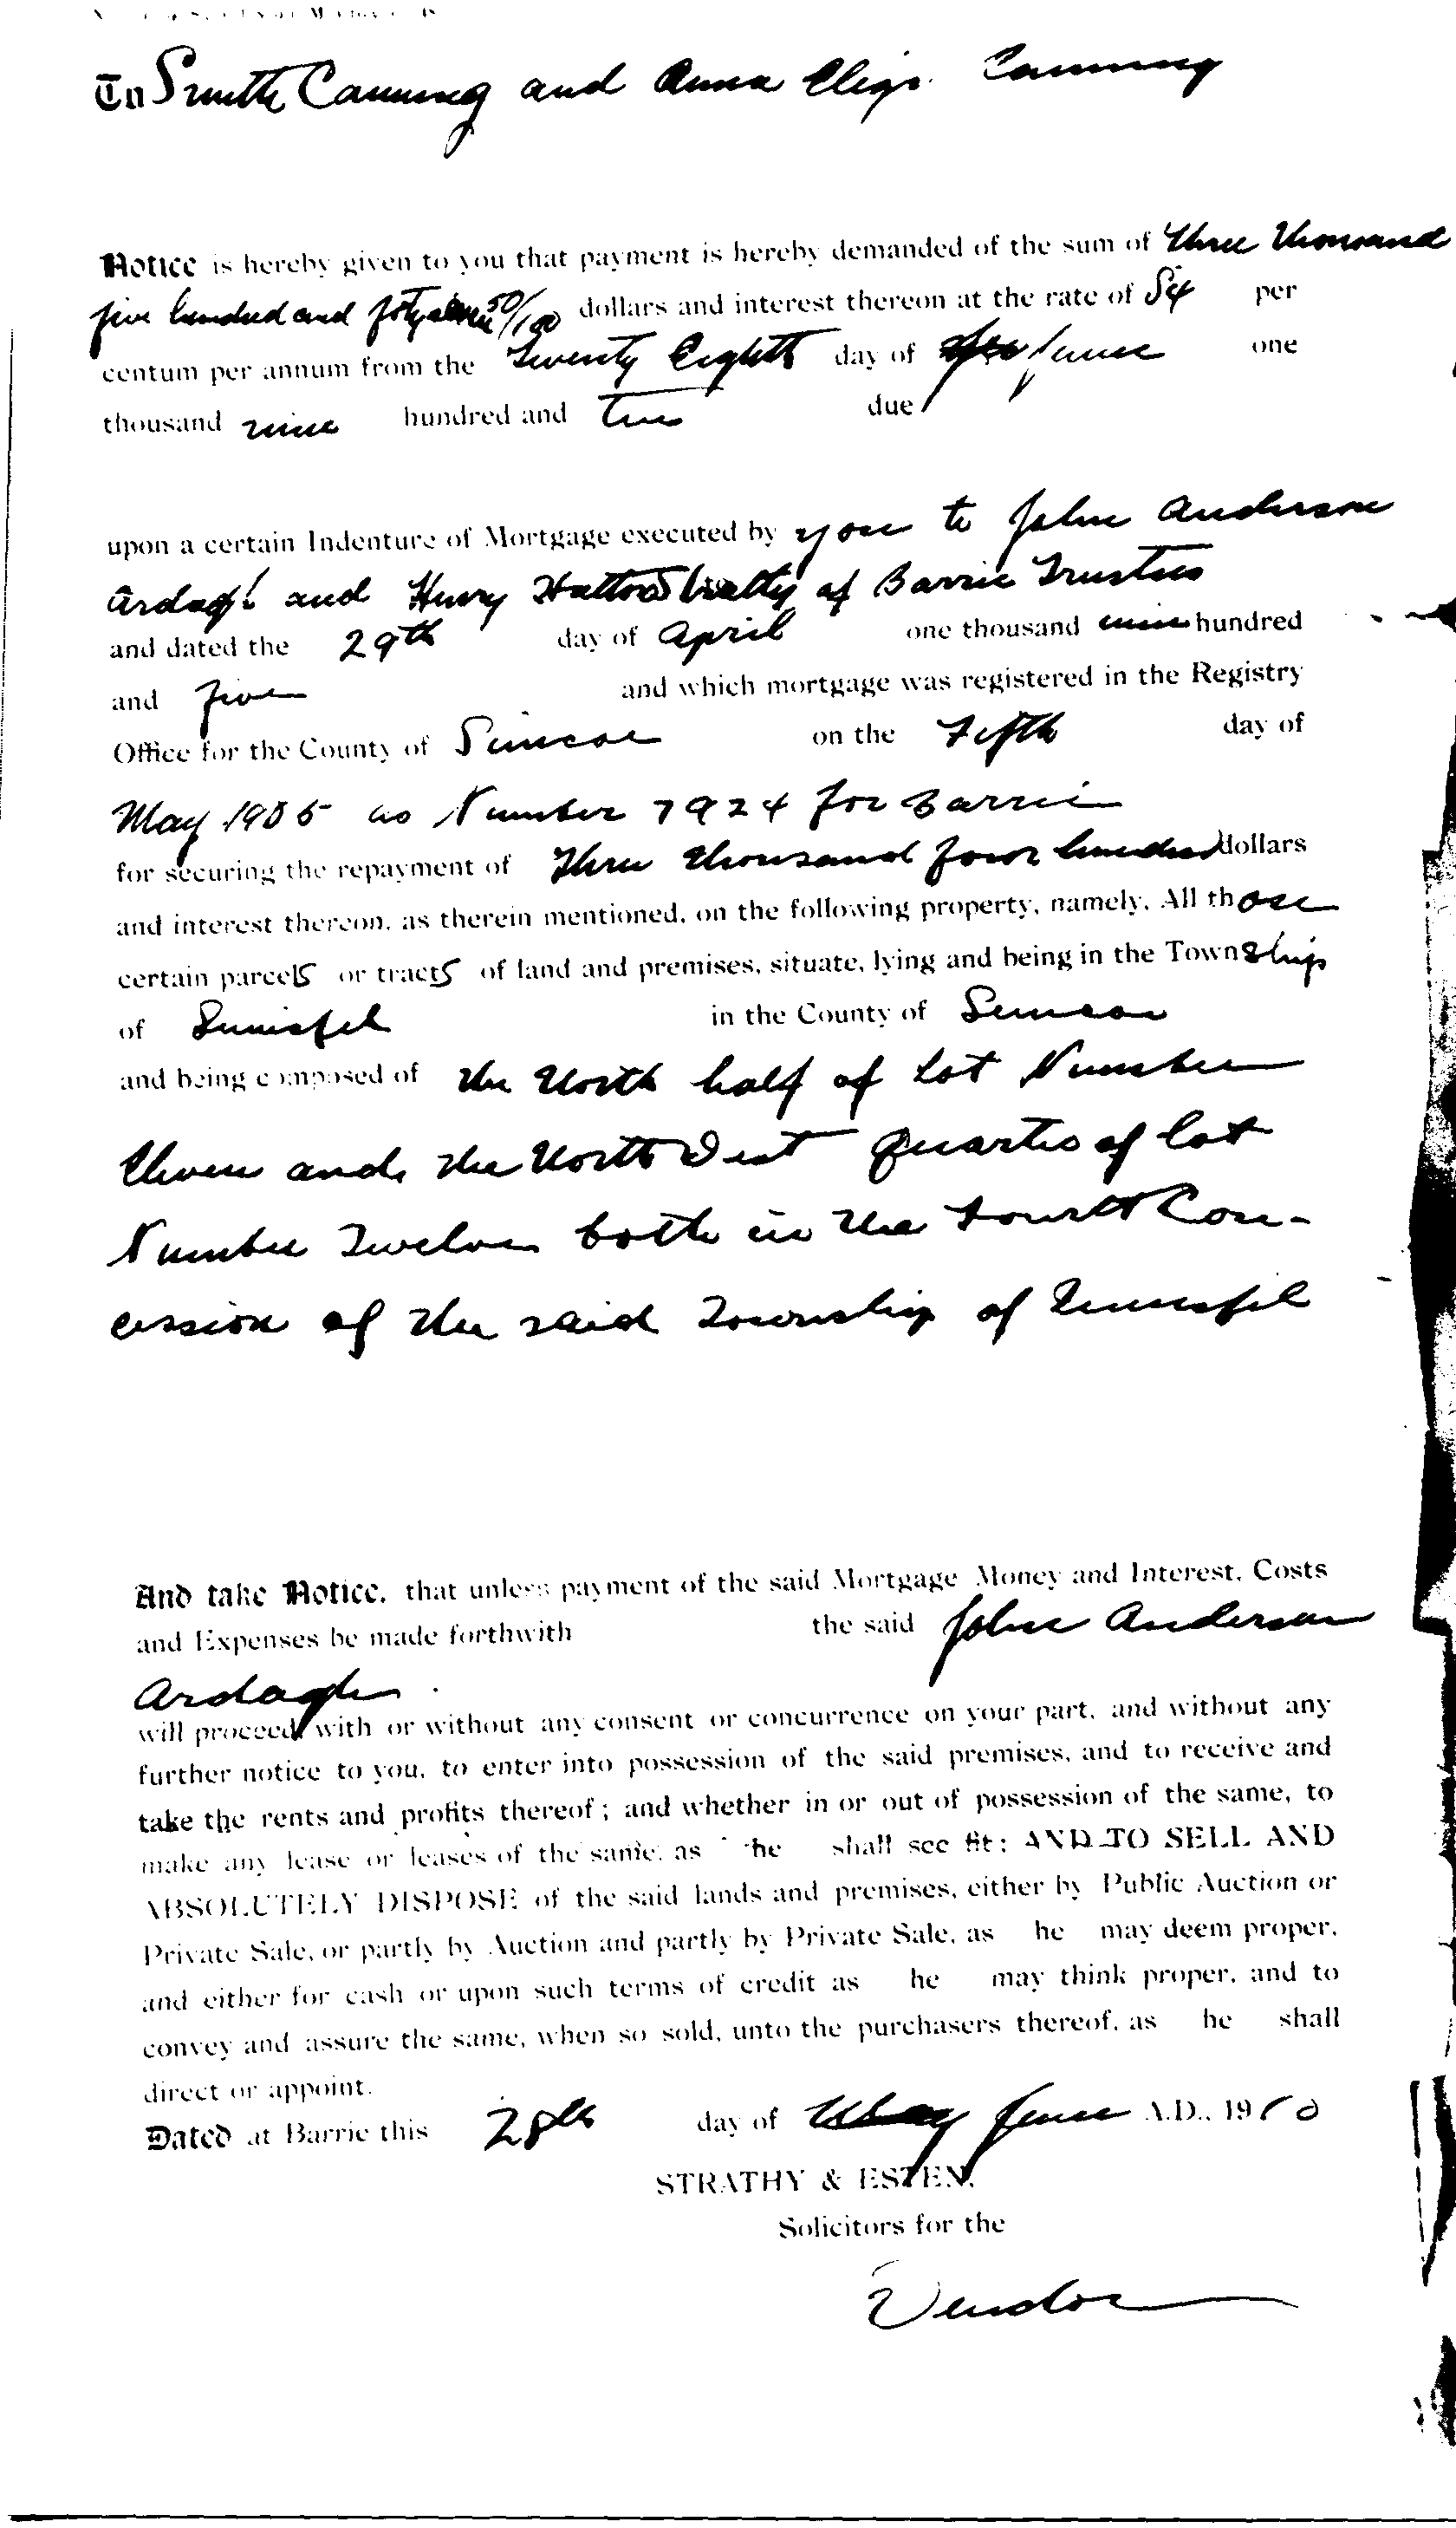 To Smith Canning and Anna Eliza. Canning
Notice is hereby given to you that payment is hereby demanded of the sum of three thousand
five hundred and forty seven 50/100 dollars and interest thereon at the rate of Six per
centum per annum from the Twenty Eighth day of June one
thousand nine hundred and ten due
upon a certain Indenture of Mortgage executed by you to John Anderson
Ardagh and Henry Hatton Strathy of Barrie Trustees
and dated the 29th day of April one thousand nine hundred
and five and which mortgage was registered in the Registry
Office for the County of Simcoe on the Fifth day of
May 1905 as Number 7924 for Barrie
for securing the repayment of Three thousand four hundred dollars
and interest thereon, as therein mentioned, on the following property, namely, All those
certain parcels or tracts of land and premises, situate, lying and being in the Township
of Innisfil in the County of Simcoe
and being composed of the North half of lot Number
Eleven and the North West quarter of lot
Number Twelve both in the Fourth Con-
cession of the said Township of Innisfil
And take Notice, that unless payment of the said Mortgage Money and Interest, Costs
and Expenses be made forthwith the said John Anderson
Ardagh
will proceed with or without any consent or concurrence on your part, and without any
further notice to you, to enter into possession of the said premises, and to receive and
take the rents and profits thereof; and whether in or out of possession of the same, to
make any lease or leases of the same, as he shall see fit; AND TO SELL AND
ABSOLUTELY DISPOSE of the said lands and premises, either by Public Auction or
Private Sale, or partly by Auction and partly by Private Sale, as he may deem proper,
and either for cash or upon such terms of credit as he may think proper, and to
convey and assure the same, when so sold, unto the purchasers thereof, as he shall
direct or appoint.
Dated at Barrie this 28th day of May June A.D., 1910
STRATHY & ESTEN,
Solicitors for the
Vendor